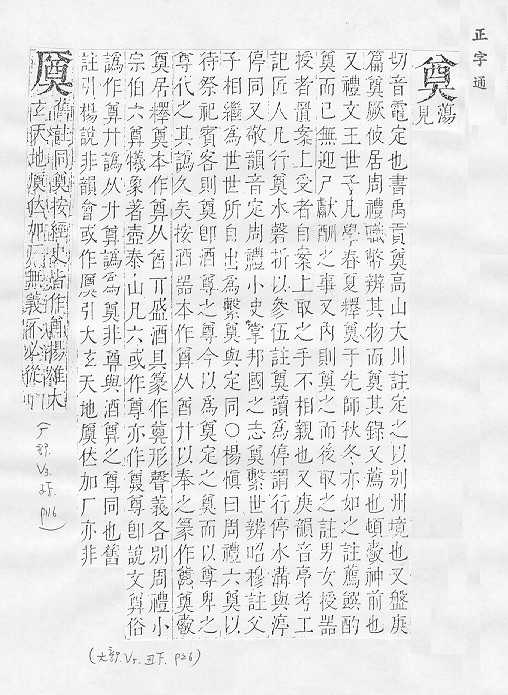 正字通
奠
蕩
見
切音電定也書禹貢奠高山大川註定之以别州境也又盤庚
篇奠厥攸居周禮職幣辨其物而奠其錄又薦也頓神前也
又禮文王世子凡學春夏釋奠于先師秋冬亦如之註薦饌酌
奠而已無迎尸獻酬之事又內則奠之而後取之註男女授器
授者置案上受者自案上取之手不相親也又庚韻音亭考工
記匠人凡行奠水磬折以參伍註奠讀為停謂行停水溝與渟
停同又敬韻音定周禮小史掌邦國之志奠繫世辨昭穆註父
子相繼為世世所自出為繫奠與定同○楊慎曰周禮六奠以
待祭祀賓客則奠卽酒尊之尊今以為奠定之奠而以尊卑之
尊代之其譌久矣按酒器本作尊从酋廾以奉之篆作奠
奠居釋奠本作奠从酋丌盛酒具篆作奠形聲義各別周禮小
宗伯六尊犧象著壺泰山凡六或作尊亦作尊卽說文尊俗
譌作尊廾譌从寸尊譌為奠非尊與酒尊之尊同也舊
註引楊說非韻會或作引大玄天地位加厂亦非
舊註同奠按經史皆作奠揚雄太
玄天地位加厂無義不必從
(厂部.V2.子下.P16)
(大部.V5.丑下.P26)